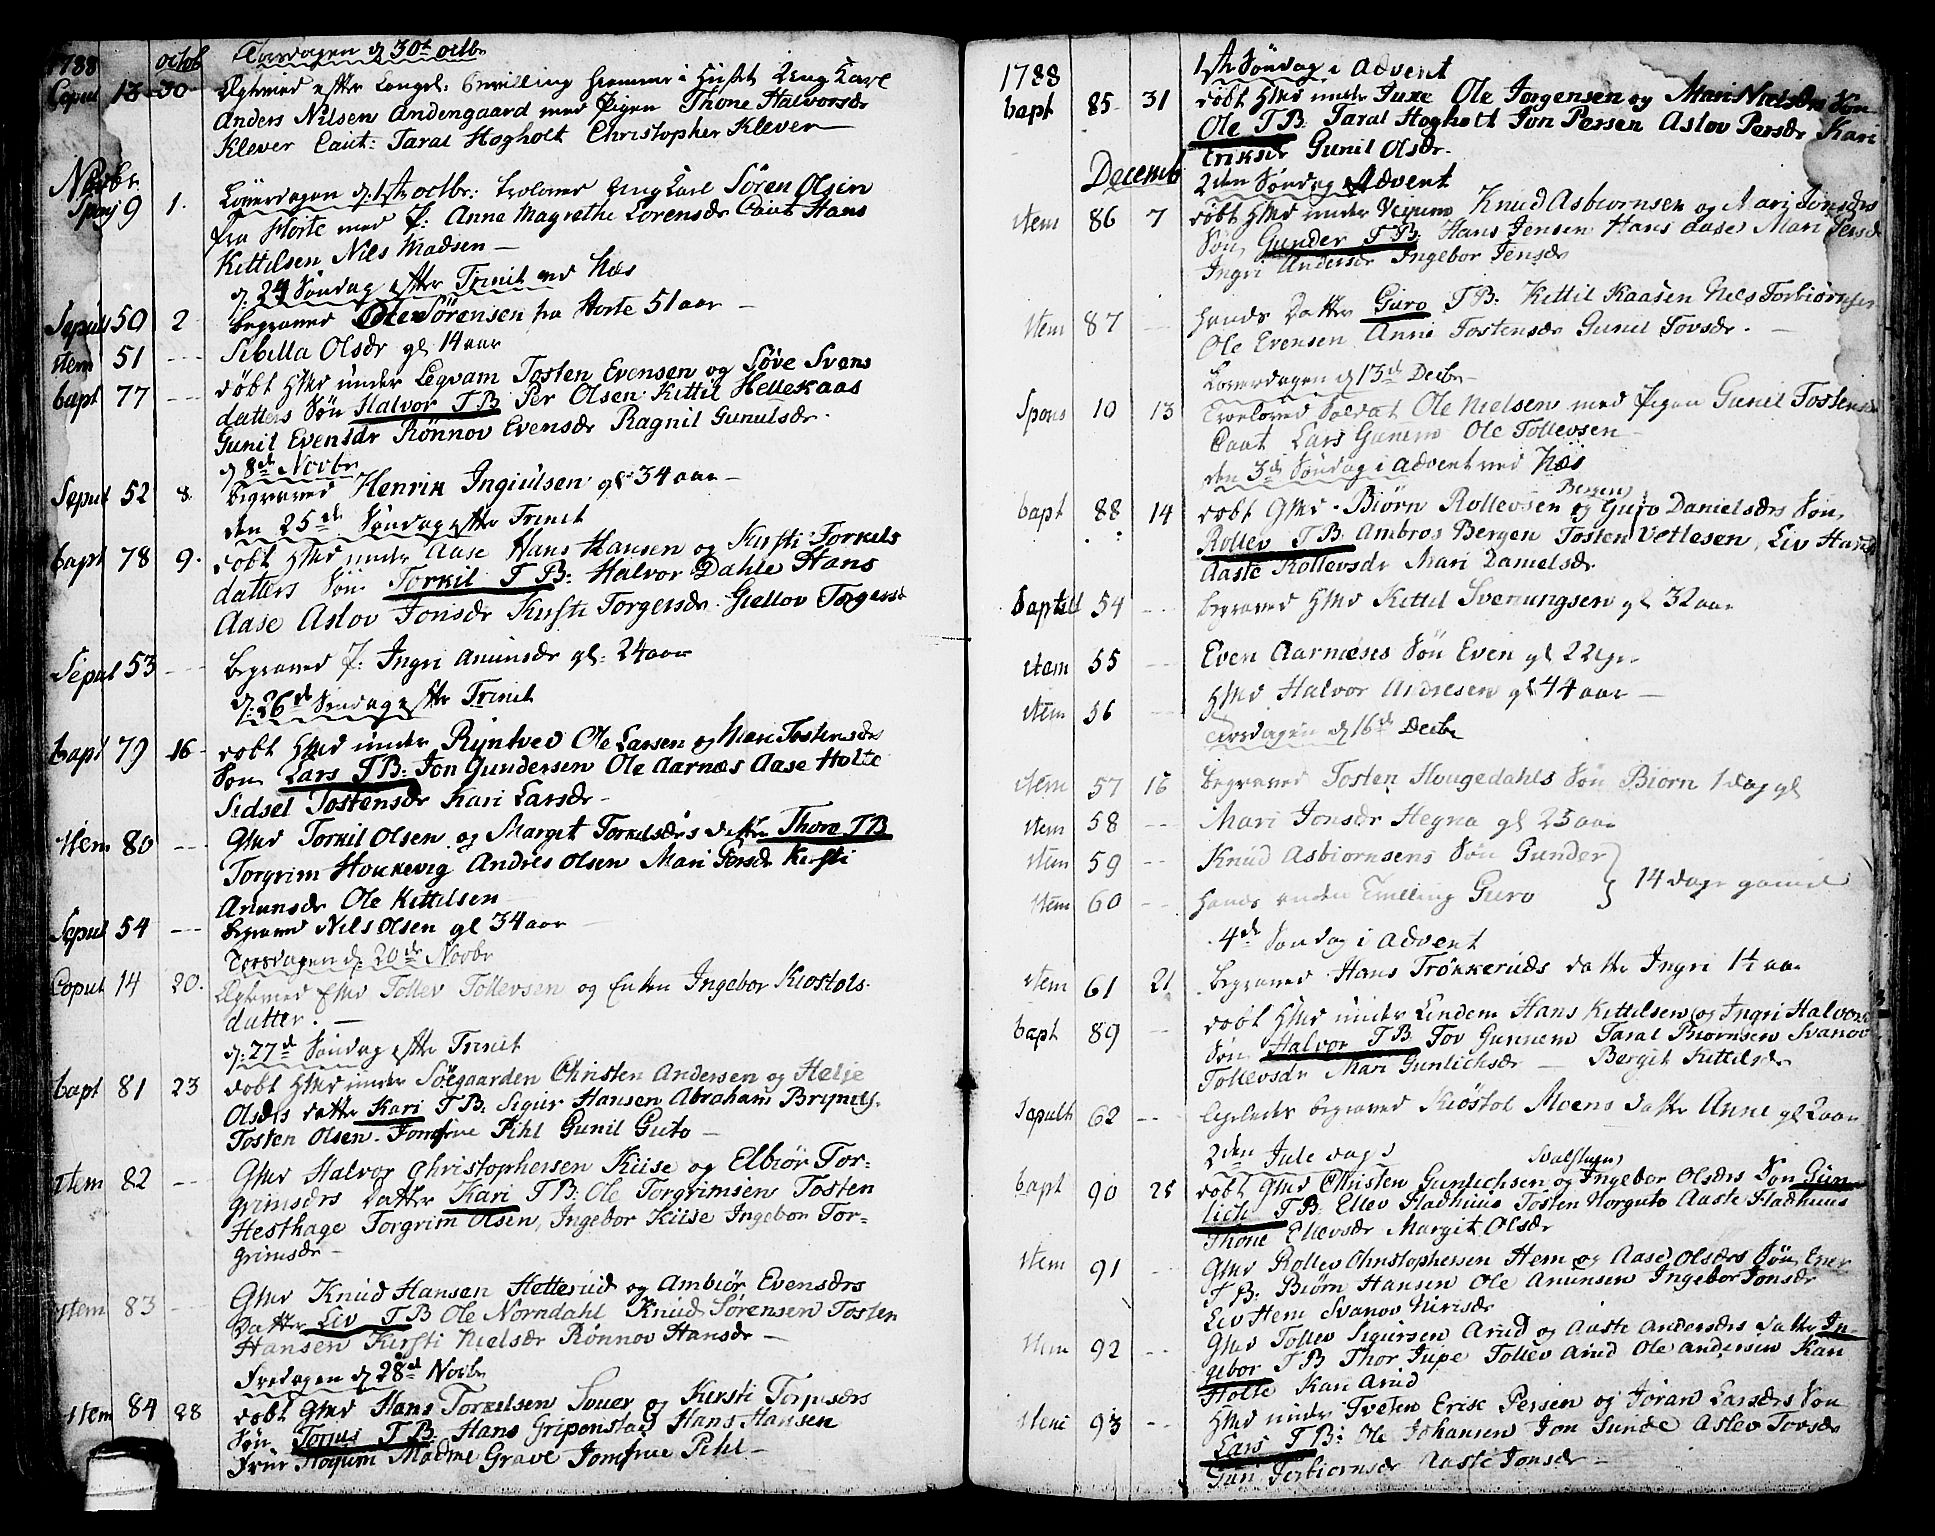 1788 octob Torsdagen d 30t octbr
Copul 13 30 Ægteviet efter Kongel: Bevilling hiemme i Huset Ung Karl
Anders Nilsen Andengaard med Pigen Thone Halvorsdr
Klever Caut: Taral Hogholt Christopher Klever
Novbr. Løverdagen d: 1ste octbr: trolovet Ung Karl Sören Olsen
Spons 9 1. fra Horte med P: Anne Magrethe Lorensdr Caut Hans
Kittilsen Nils Madsen
d: 24 Søndag efter Trinit ved Næs
Sepult 50 2 Begravet Ole Sörensen fra Horte 51 aar
item 51 --- Sibilla Olsdr gl 14 aar
bapt 77 --- døbt Hmd under Legvam Tosten Evensen og Söve Svens
datters Sön Halvor T B Per Olsen Kittil Hellekaas
Gunil Evensdr Rönnov Evensdr Ragnil Gunulsdr.
d 8de Novbr
Sepult 52 8 Begravet Henrik Ingiulsen gl 34 aar
den 25de Søndag efter Trinit
bapt 78 9. døbt Hmd under Aase Hans Hansen og Kirsti Torkels
datters Sön Torkil T B: Halvor Dahle Hans
Aase Aslov Jonsdr Kirsti Torgersdr Giellov Torgersd
Sepult 53 --- Begravet P: Ingri Anunsdr gl: 24 aar
d: 26de Søndag efter Trinit
bapt 79 16 døbt Hmd under Ryntved Ole Larsen og Mari Tostensdrs
Søn Lars T B: Jon Gundersen Ole Aarnæs Aase Holte
Sidsel Tostensdr Kari Larsdr
Item 80 --- Gmd Torkil Olsen og Marget Torkilsdrs datter Thore T B
Torgrim Houkevig Andres Olsen Mari Persdr Kirsti
Anunsdr Ole Kittilsen
Sepult 54 --- Begravet Nils Olsen gl 34 aar
Torsdagen d: 20de Novbr
Copul 14 20. Ægteviet EMd Tollev Tollevsen og Enken Ingebor Kiostols
datter.
d: 27de Søndag efter Trinit
bapt 81 23 døbt Hmd under Söegaarden Christen Andersen og Helje
Olsdrs datter Kari T B: Sigur Hansen Abraham Brynels.
Tosten Olsen. Jomfrue Pihl Gunil Guto
Item 82 --- Gmd Halvor Christophersen Kiise og Elbiör Tor=
grimsdrs Datter Kari T B: Ole Torgrimsen Tosten
Hesthage Torgrim Olsen, Ingebor Kiise Ingebor Tor=
grimsdr
Item 83 - Gmd Knud Hansen Hetterud og Ambiör Evensdrs
Datter Liv T B Ole Norndahl Knud Sörensen Tosten
Hansen Kirsti Nielsdr Rönnov Hansdr
Fredagen d 28de Novbr
Item 84 28 døbt Gmd Hans Torkelsen Souer og Kirsti
Søn T B: Hans Gripenstad Hans Hansen
Frue Madme Grave Jomfrue Pihl
1788 1ste Søndag i Advent
bapt 85 31 døbt Hmd under Juxe Ole Jorgensen og Mari Nielsdrs Søn
Ole T B: Taral Hogholt Jon Persen Aslov Persdr Kari
Eriksdr Gunil Olsdr.
Decemb 2den Søndag Advent
item 86 7 døbt Hmd under Knud Asbiornsen og Mari Jonsdrs
Sön Gunder T B: Hans Jensen Hans Aase Mari Persd
Ingri Andersdr Ingebor Jensdr
Item 87 --- Hands Datter Guro T B: Kittil Kaasen Nels Torbiörnsen
Ole Evensen Anne Tostensdr Gunil Tovsdr.
Løverdagen d 13de Decbr
Spons 10 13 Trolovet Soldat Ole Nielsen med Pigen Gunil Tostensdr
Caut Lars Gunem Ole Tollevsen
den 3de Søndag i Advent ved Næs
Bergen
bapt 88 14 døbt Gmd Biørn Rollevsen og Guro Danielsdrs Søn
Rollev T B: Ambros Bergen Tosten Vetlesen, Liv
Aaste Rollevsdr Mari Danielsdr
54 --- Begravet Hmd Kittil Svenungsen gl 32 aar
item 55 --- Even Aarnæses Sön Even gl 22
item 56 --- Hmd Halvor Andresen gl 44 aar
Tirsdagen d 16de Decbr
item 57 16 Begravet Tosten Hougedahls Sön Biörn 1 dag gl
item 58 --- Mari Jonsdr Hegna gl 25 aar
item 59 --- Knud Asbiornsens Sön Gunder
item 60 --- Hands anden Tvilling Guro } 14 dage gamel
4de Søndag i Advent
item 61 21 Begravet Hans Trönkeruds datter Ingri 1½ aar
bapt 89 --- døbt Hmd under Lindem Hans Kittilsen og Ingri Halvors
Søn Halvor T B Tov Gunnem Taral Biornsen Svanov
Tollevsdr Mari Gunlichsdr --- Bergit Kittilsdr
Sepult 62 --- Ligeledes begravet Kiöstol Moens datter Anne gl 2 aar
2den Jule dag
bapt 90 25 døbt Gmd Christen Gunlichsen og Ingebor Olsdrs Søn Gun
lich T B: Ellev Fladhuus Tosten Norguto Aaste Fladhuus
Thone Ellevsdr Margit Olsdr
Item 91 --- Gmd Rollev Christophersen Hem og Aase Olsdrs Søn
T B: Biørn Hansen Ole Anunsen Ingebor Jonsdr
Liv Hem Svanov
Item 92 --- Gmd Tollev Sigursen Arud og Aaste Andersdrs datter In-
gebor T B Thor Jupe Tollev Arud Ole Andersen Kari
Holte Kari Arud
Item 93 --- Hmd under Tveten Erik Persen og Jöran Larsdrs Søn
Lars T B: Ole Johansen Jon Sunde Aslov Tovsdr
Guri Torbiornsdr Aaste Jonsdr